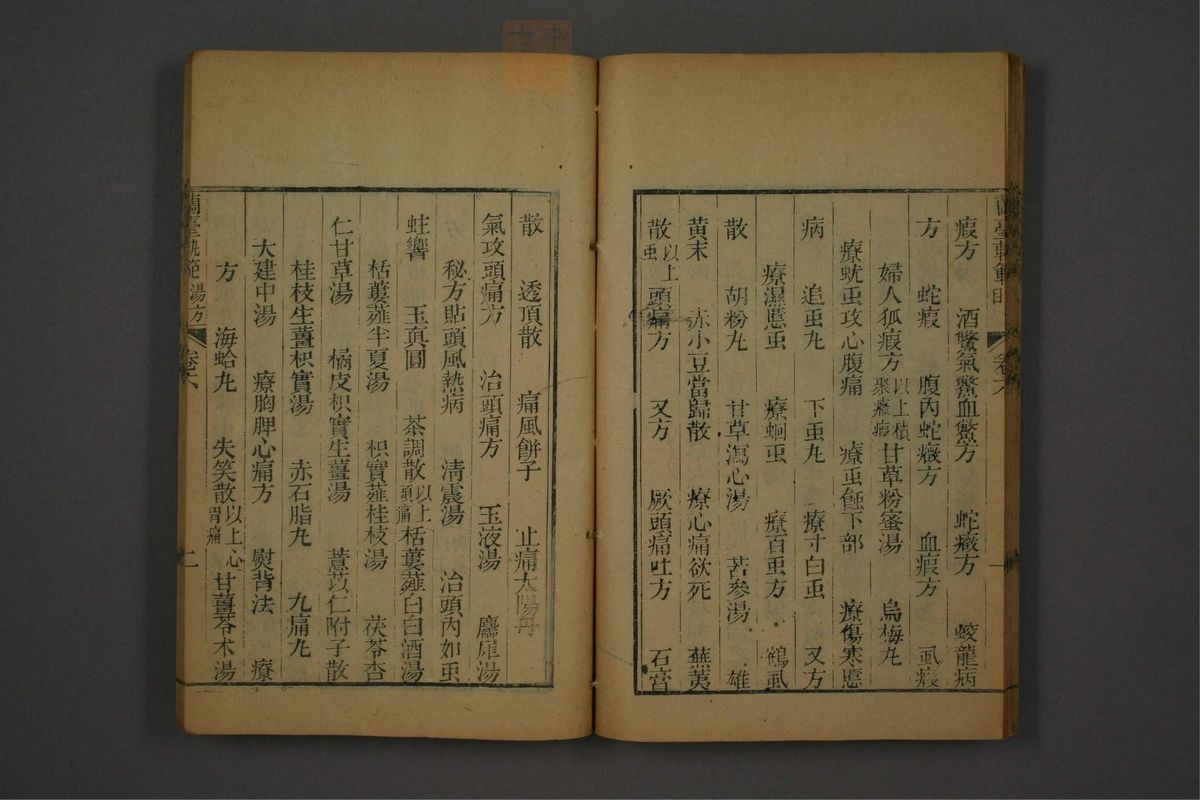 瘕方　酒鱉氣鱉血鱉方　蛇癥方　蛟龍病
方　蛇瘕　腹内蛇癥方　血瘕方　虱瘕
婦人狐瘕方以上積聚癥瘕甘草粉蜜湯　烏梅丸
療蚘䖝攻心腹痛　療䖝蝕下部　療傷寒䘌
病　追䖝丸　下䖝丸　療寸白䖝　又方
療濕䘌䖝　療蛔䖝　療百䖝方　鶴虱
散　胡粉丸　甘草瀉心湯　苦參湯　雄
黄末　赤小豆當歸散　療心痛欲死　蕪荑
散以上䖝頭痛方　又方　厥頭痛吐方　石膏
蘭臺軌範　卷六　一
散　透頂散　痛風餅子　止痛太陽丹
氣攻頭痛方　治頭痛方　玉液湯　麝犀湯
秘方貼頭風熱病　清震湯　治頭内如䖝
蛀響　玉真圓　茶調散以上頭痛栝蔞薤白白酒湯
栝蔞薤半夏湯　枳實薤桂枝湯　茯苓杏
仁甘草湯　橘皮枳實生薑湯　薏苡仁附子散
桂枝生薑枳實湯　赤石脂丸　九痛丸
大建中湯　療胸脾心痛方　熨背法　療
方　海蛤丸　失笑散以上心胃痛甘薑苓术湯
蘭臺軌範　湯方　卷六　二